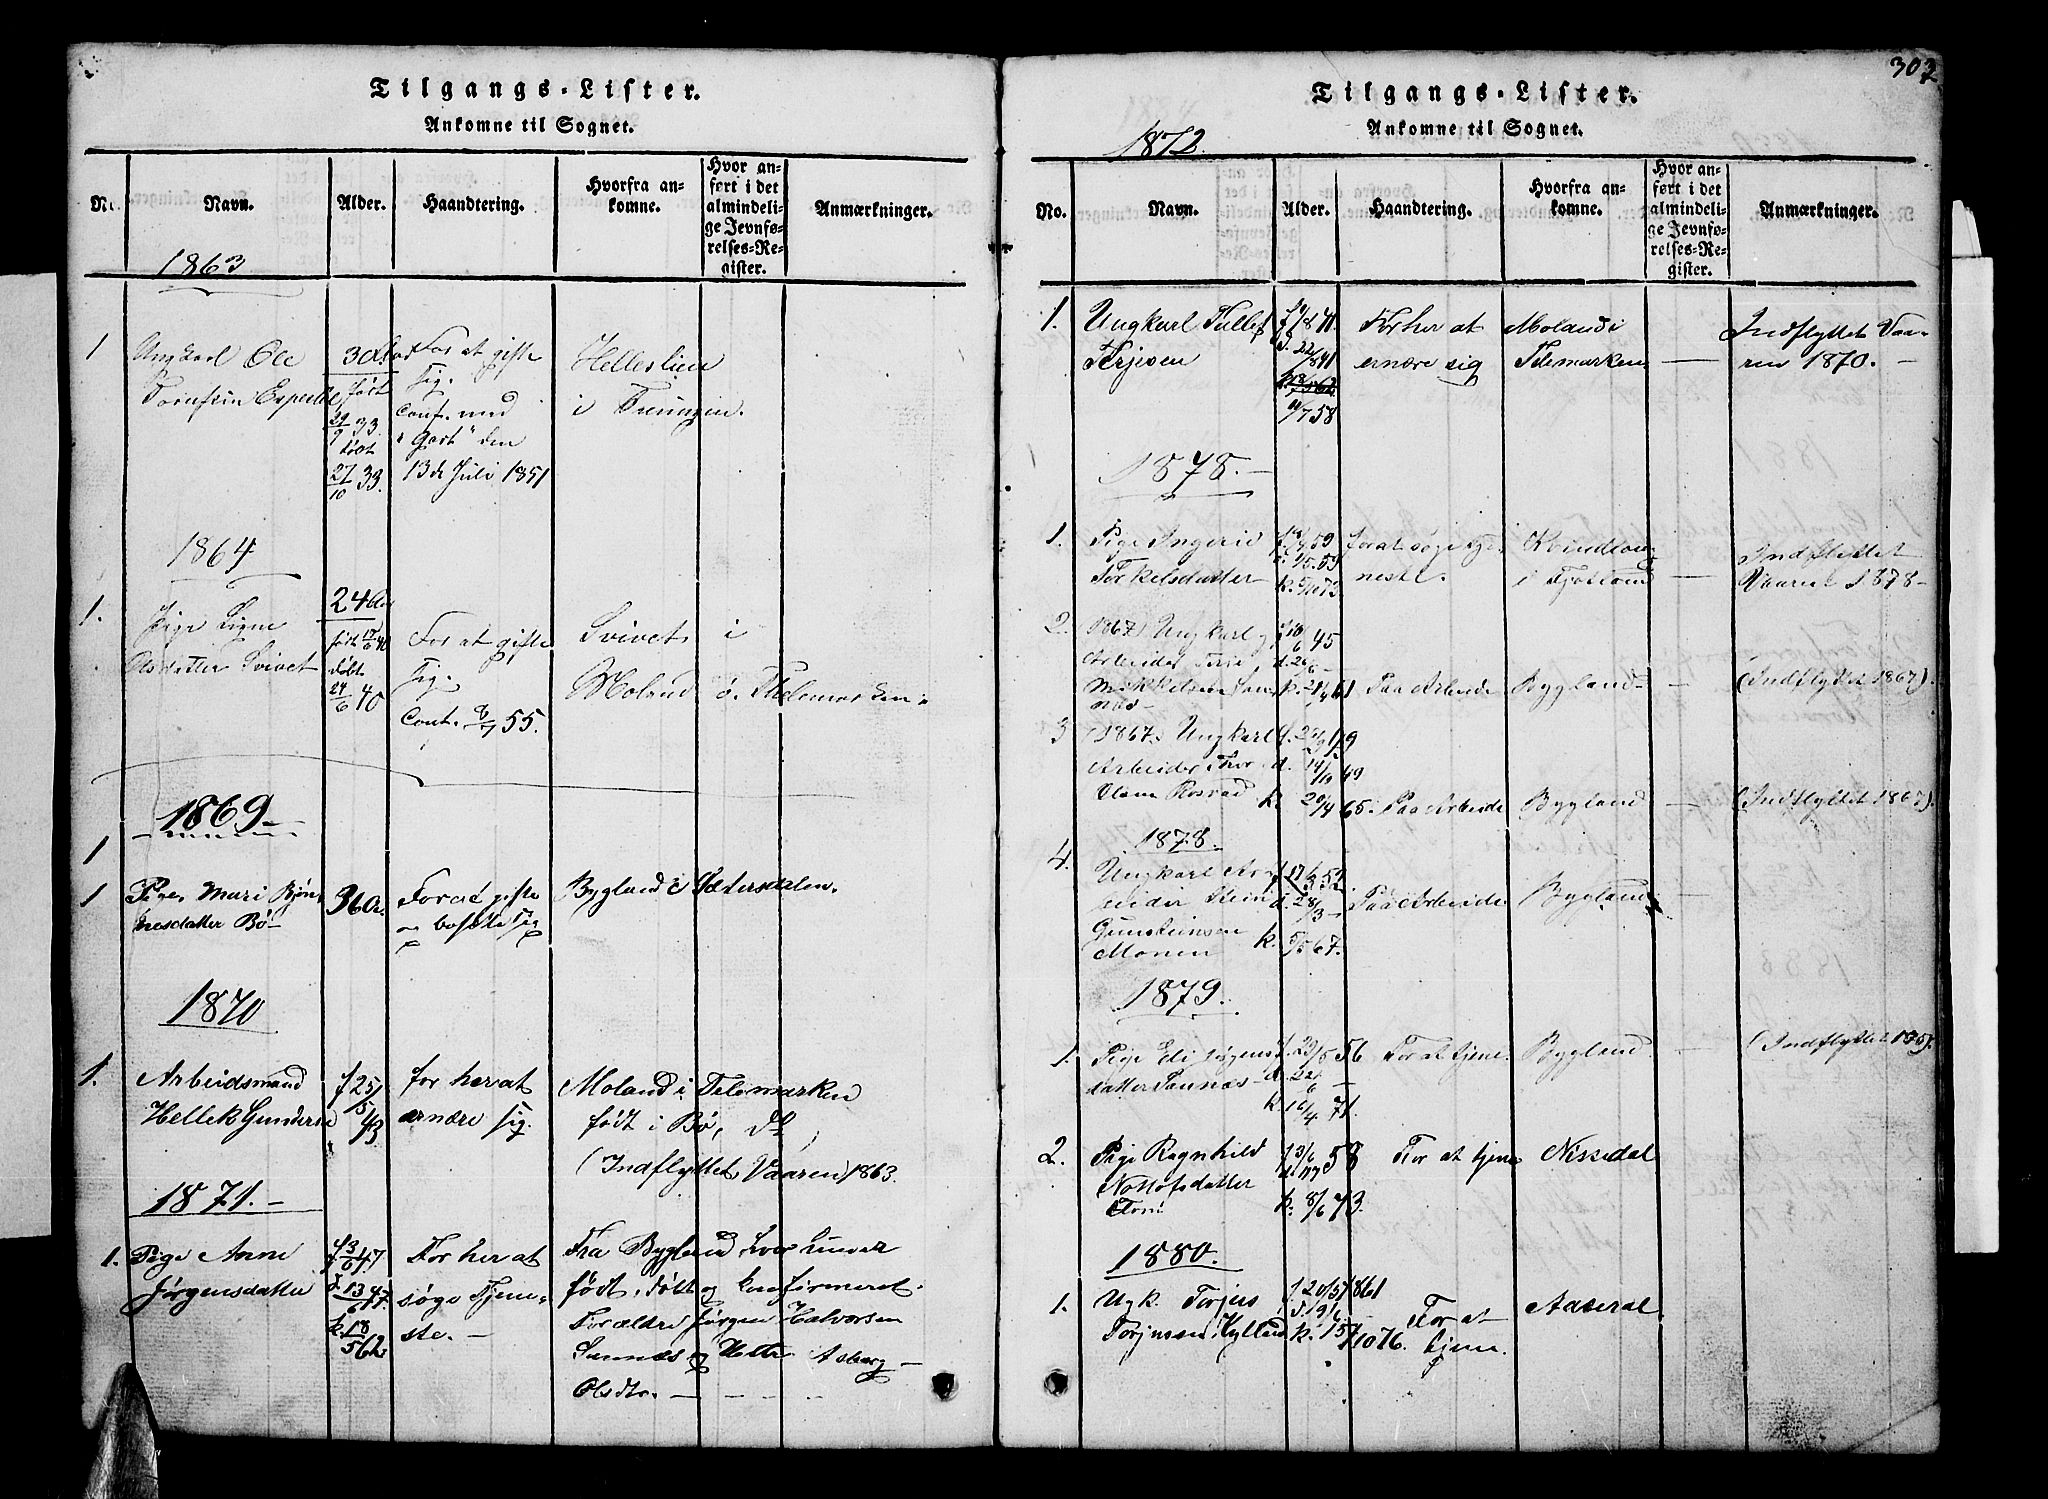 Tilgangs-Lister.
Ankomne til Sognet.
No.
Navn.
Alder.
Haandtering.
Hvorfra an-
komne.
Hvor an-
ført i det
almindeli-
ge Jevnfø-
relses-Re-
gister.
Anmærkninger.
1863
1
Ungkarl Ole
30
For at gifte
sig.
født
29/9 33
døbt
27/10 33.
Conf. med
"Godt" den
13de Juli 1851
i Treungen.
1864
1.
Pige Signe
Olsdatter Svivet
24 Aar
født 17/6 40
døbt
24/6 40
For at gifte
sig.
Conf. 8/7 55.
Svivet i
Moland ø. Thelemarken.
1869
1
1
Pige Mari Bjøn-
nesdatter Bø
36 Ar.
For at gifte
og bosætte sig
Bygland i Sætersdalen.
1870
1.
Arbeidsmand
Hellek Gunderse
f 25/5 43
for her at
ernære sig.
Moland i Telemarken
født i Bø,
(Indflyttet Vaaren) 1863.
1871.
1.
Pige Anne
Jørgensdatter
f 3/6 47
d. 13/6 47.
k. 18
562.
For her at
søge Tjene-
ste.
Fra Bygland hvor hun er
født, døbt og konfirmeret.
Forældre Jørgen Halvorsen
Sannes og Asberg
Olsdtr.
302
Tilgangs-Lister.
Ankomne til Sognet.
1872.
No.
Navn.
Alder.
Haandtering.
Hvorfra an-
komne.
Hvor an-
ført i det
almindeli-
ge Jevnfø-
relses-Re-
gister.
Anmærkninger.
1.
Ungkarl Tullef
Terjesen
d. 22/841
11/7 58
For her at
ernære sig
Moland i
Telemarken
Indflyttet Vaa-
ren 1870.
1878.
1.
Pige Ingerid
Torkelsdatter
k. 5/10 73
for at søge tje-
neste.
i Fjotland
Indflyttet
Vaaren 1878
2.
(1867) Ungkarl og
Arbeider Terje
Mikkelsen
f 18/6 45
d. 26/6
Paa Arbeide
Bygland
(Indflyttet 1867).
3
(1867) Ungkarl
Arbeider Thor
Olsen Rosvad
k. 20/4 65.
Paa Arbeide
Bygland
(Indflyttet 1867).
1878.
4.
Ungkarl Ar-
beider Stein
Gunsteinsen
Monen
f 17/3 52
d. 28/3
k. 5/5 67.
Paa Arbeide
Bygland
1879.
1.
Pige Edi Jørgens-
datter Sannæs
f. 29/5 56
d. 22/6
k. 16/4 71.
For at tjene.
Bygland.
2.
Pige Ragnhild
Nottolfsdatter
f 3/6 58
k. 8/6 73.
For at tjene
Nissedal
1880.
1.
Ugk. Torjus
Torjussen Kylland
f. 20/5 1861
d. 9/6
k. 15/10 76.
For at
tjene.
Aaseral